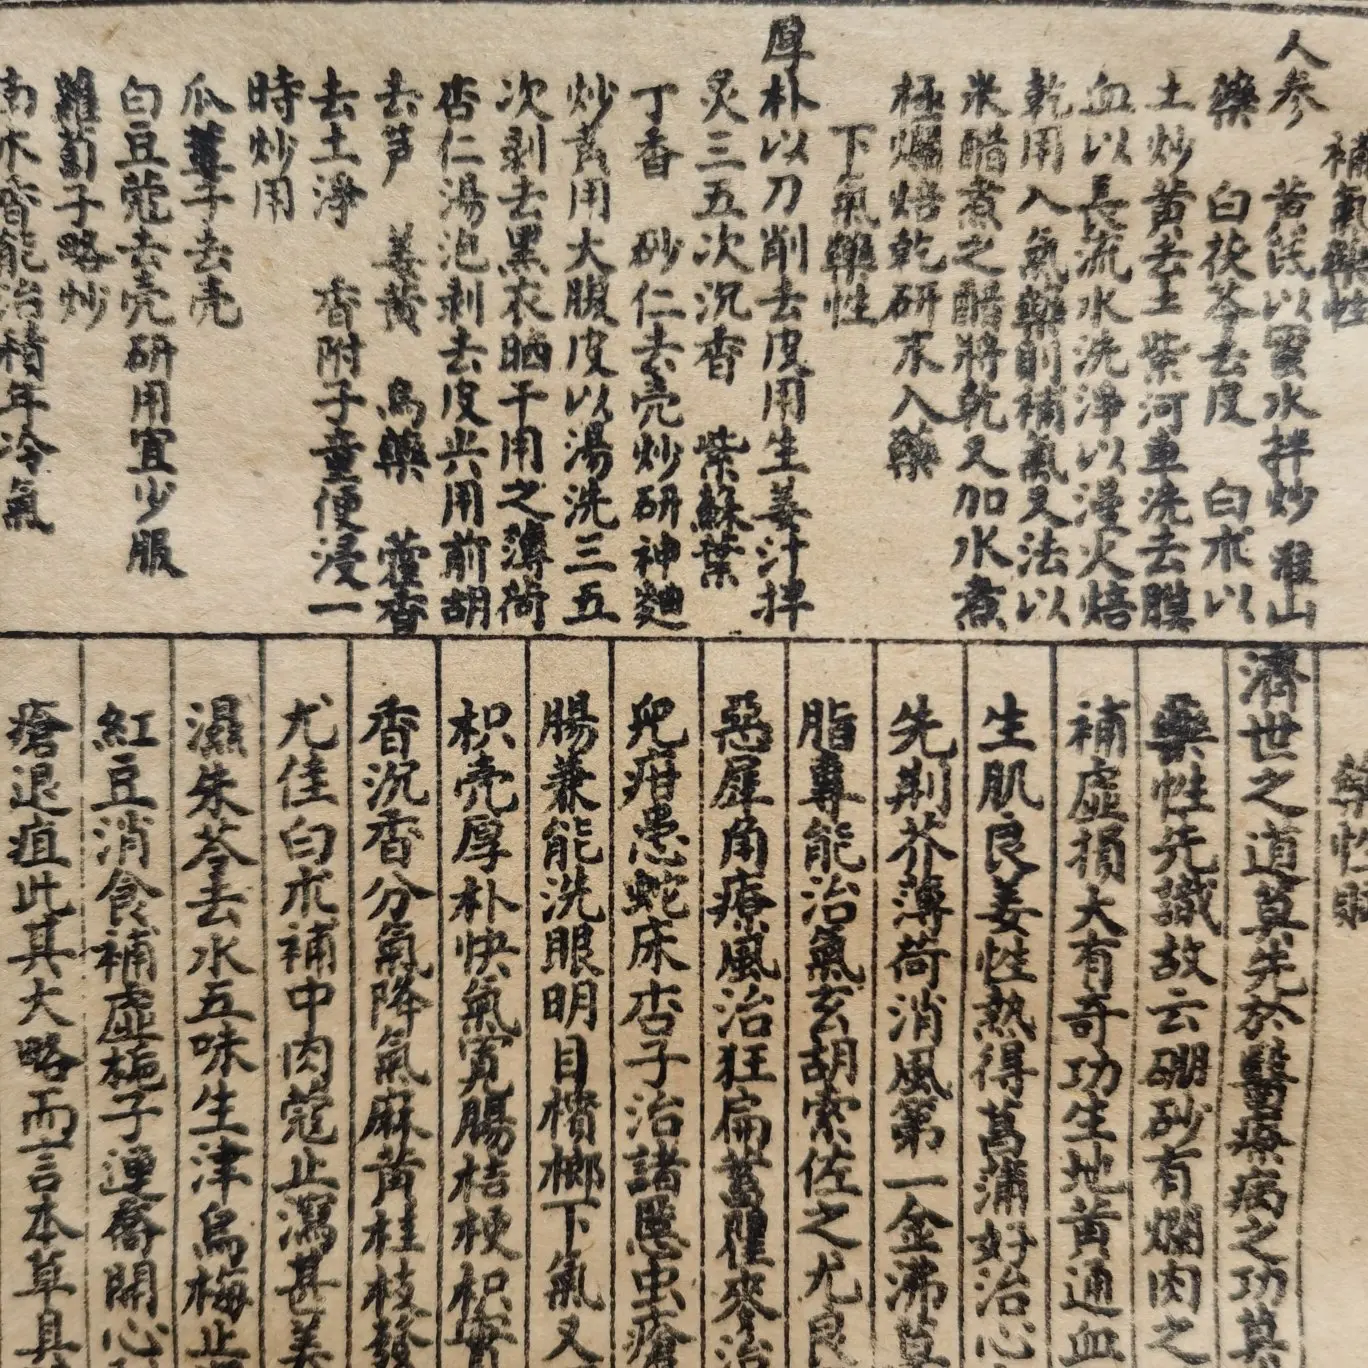 補氣藥性
人參 黃芪以蜜水拌炒 淮山
藥 白茯苓去皮 白朮以
土炒黃去土 紫河車洗去膜
血以長流水洗淨以漫火焙
乾用入氣藥則補氣又法以
米醋煮之醋將乾又加水煮
極爛焙乾研末入藥
下氣藥性
厚朴以刀削去皮用生姜汁拌
炙三五次沉香 紫蘇葉
丁香 砂仁去壳炒研神麯
炒黃用大腹皮以湯洗三五
次剥去黑衣晒干用之薄荷
杏仁湯泡剥去皮尖用前胡
去芦 姜黃 烏藥 藿香
去土淨 香附子童便浸一
時炒用
瓜蔞子去壳
白豆蔻去壳研用宜少服
蘿蔔子略炒
南木香能治積年冷氣
藥性賦
濟世之道莫先於醫療病之功莫
藥性先識故云硼砂有爛肉之
補虛損大有奇功生地黃通血
生肌良姜性熱得菖蒲好治心
先荆芥薄荷消風第一金沸草
脂專能治氣玄胡索佐之尤良
惡犀角療風治狂扁蓄瞿麥治
兒疳患蛇床杏子治諸惡虫瘡
腸兼能洗眼明目檳榔下氣又
枳壳厚朴快氣寬腸桔梗枳實
香沉香分氣降氣麻黃桂枝發
尤佳白朮補中肉蔻止瀉甚美
濕朱苓去水五味生津烏梅止
紅豆消食補虛梔子連喬開心
瘡退疽此其大略而言本草具